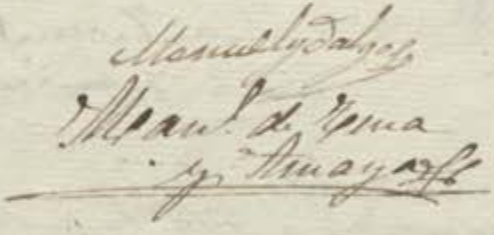 Manuel ydalgo
Man.l de Tena
y Amaya